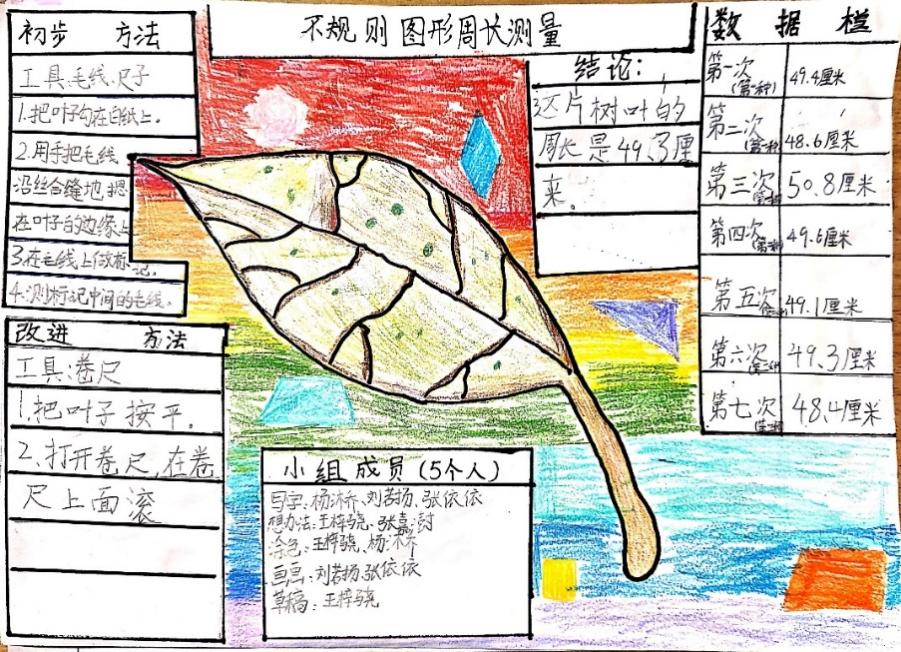 不规则图形周长测量
初步 方法
工具:毛线.尺子
1.把叶子勾在白纸上。
2.用手把毛线
沿丝合缝地摁
在叶子的边缘上
3.在毛线上做标记。
4.测标记中间的毛线。
改进 方法
工具:卷尺
1.把叶子按平。
2.打开卷尺,在卷
尺上面滚
结论:
这片树叶的
周长是49.3厘
米。
数据栏
第一次(第一种) 49.4厘米
第二次 48.6厘米
第三次 50.8厘米
第四次 49.6厘米
第五次 49.1厘米
第六次 49.3厘米
第七次 48.4厘米
小组成员(5个人)
写字:杨沐乔、刘若扬、张依依
想办法:王梓骁、张嘉
涂色:王梓骁、杨沐乔
画画:刘若扬.张依依
草稿:王梓骁